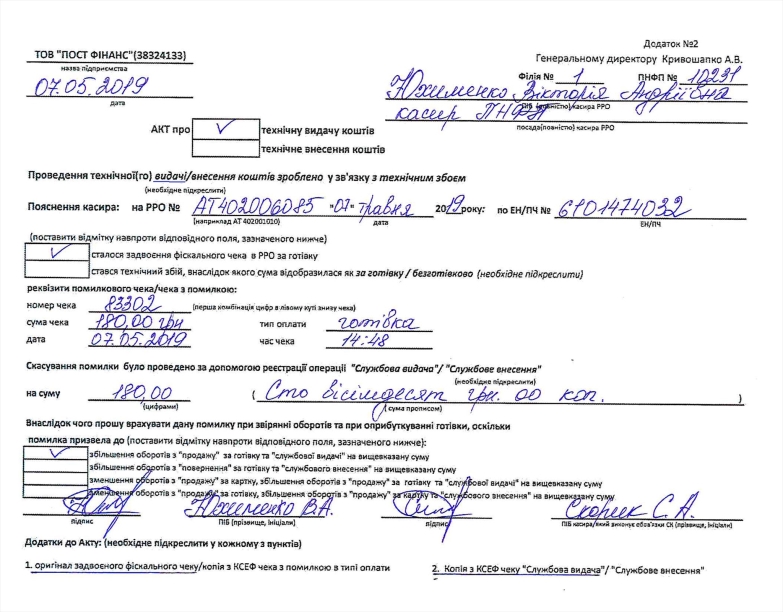 Додаток №2
ТОВ "ПОСТ ФІНАНС"(38324133)
Генеральному директору Кривошапко А.В.
назва підприємства
Філія № 1 ПНФП № 10291
07.05.2019
Юхименко Вікторія Андріївна
дата
ПІБ (повністю)касира РРО
касир ПНФП
посада(повністю) касира РРО
АКТ про ✓ технічну видачу коштів
технічне внесення коштів
Проведення технічної(го) видачі/внесення коштів зроблено у зв'язку з технічним збоєм
(необхідне підкреслити)
Пояснення касира: на РРО № АТ402006085 "07" травня 2019 року: по ЕН/ПЧ № 6101474032
(наприклад АТ 402001010) дата ЕН/ПЧ
(поставити відмітку навпроти відповідного поля, зазначеного нижче)
✓ сталося задвоєння фіскального чека в РРО за готівку
стався технічний збій, внаслідок якого сума відобразилася як за готівку / безготівково (необхідне підкреслити)
реквізити помилкового чека/чека з помилкою:
номер чека 83302 (перша комбінація цифр в лівому куті знизу чека)
сума чека 180,00 грн тип оплати готівка
дата 07.05.2019 час чека 14:48
Скасування помилки було проведено за допомогою реєстрації операції "Службова видача"/ "Службове внесення"
(необхідне підкреслити)
на суму 180,00 ( Сто вісімдесят грн. 00 коп. )
(цифрами) (сума прописом)
Внаслідок чого прошу врахувати дану помилку при звірянні оборотів та при оприбуткуванні готівки, оскільки
помилка призвела до (поставити відмітку навпроти відповідного поля, зазначеного нижче):
✓ збільшення оборотів з "продажу" за готівку та "службової видачі" на вищевказану суму
збільшення оборотів з "повернення" за готівку та "службового внесення" на вищевказану суму
зменшення оборотів з "продажу" за картку, збільшення оборотів з "продажу" за готівку та "службової видачі" на вищевказану суму
зменшення оборотів з "продажу" за готівку, збільшення оборотів з "продажу" за картку та "службового внесення" на вищевказану суму
Юхименко В.А. Скорик С.А.
підпис ПІБ (прізвище, ініціали) підпис ПІБ касира/який виконує обов'язки СК (прізвище, ініціали)
Додатки до Акту: (необхідне підкреслити у кожному з пунктів)
1. оригінал задвоєного фіскального чеку/копія з КСЕФ чека з помилкою в типі оплати 2. Копія з КСЕФ чеку "Службова видача"/ "Службове внесення"